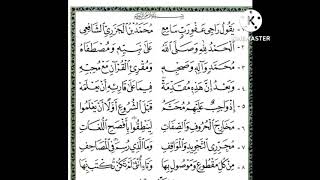 ١- يَقُولُ رَاجِي عَفْوِ رَبٍّ سَامِعِ مُحَمَّدُ بْنُ الْجَزَرِيِّ الشَّافِعِي
٢- اَلْحَمْدُ لِلَّهِ وَصَلَّى اللهُ عَلَى نَبِيِّهِ وَمُصْطَفَاهُ
٣- مُحَمَّدٍ وَآلِهِ وَصَحْبِهِ وَمُقْرِئِ الْقُرْآنِ مَعْ مُحِبِّهِ
٤- وَبَعْدُ إِنَّ هَذِهِ مُقَدِّمَهْ فِيمَا عَلَى قَارِئِهِ أَنْ يَعْلَمَهْ
٥- إِذْ وَاجِبٌ عَلَيْهِمُ مُحَتَّمُ قَبْلَ الشُّرُوعِ أَوَّلًا أَنْ يَعْلَمُوا
٦- مَخَارِجَ الْحُرُوفِ وَالصِّفَاتِ لِيَنْطِقُوا بِأَفْصَحِ اللُّغَاتِ
٧- مُحَرِّرِي التَّجْوِيدِ وَالْمَوَاقِفِ وَمَا الَّذِي رُسِمَ فِي الْمَصَاحِفِ
٨- مِنْ كُلِّ مَقْطُوعٍ وَمَوْصُولٍ بِهَا وَتَاءِ أُنْثَى لَمْ تَكُنْ تُكْتَبْ بِهَا